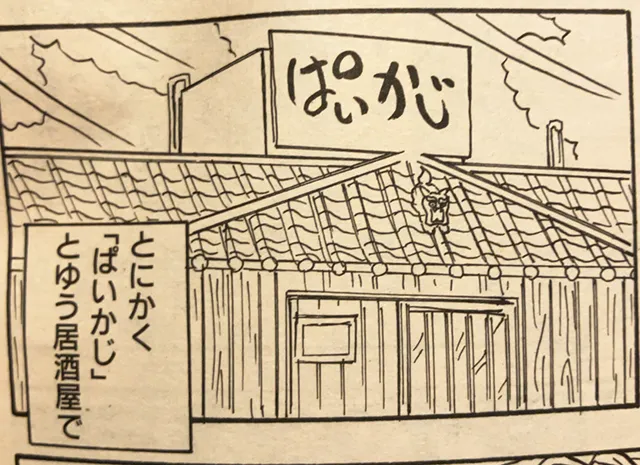 ぱいかじ
とにかく
「ぱいかじ」
とゆう居酒屋で